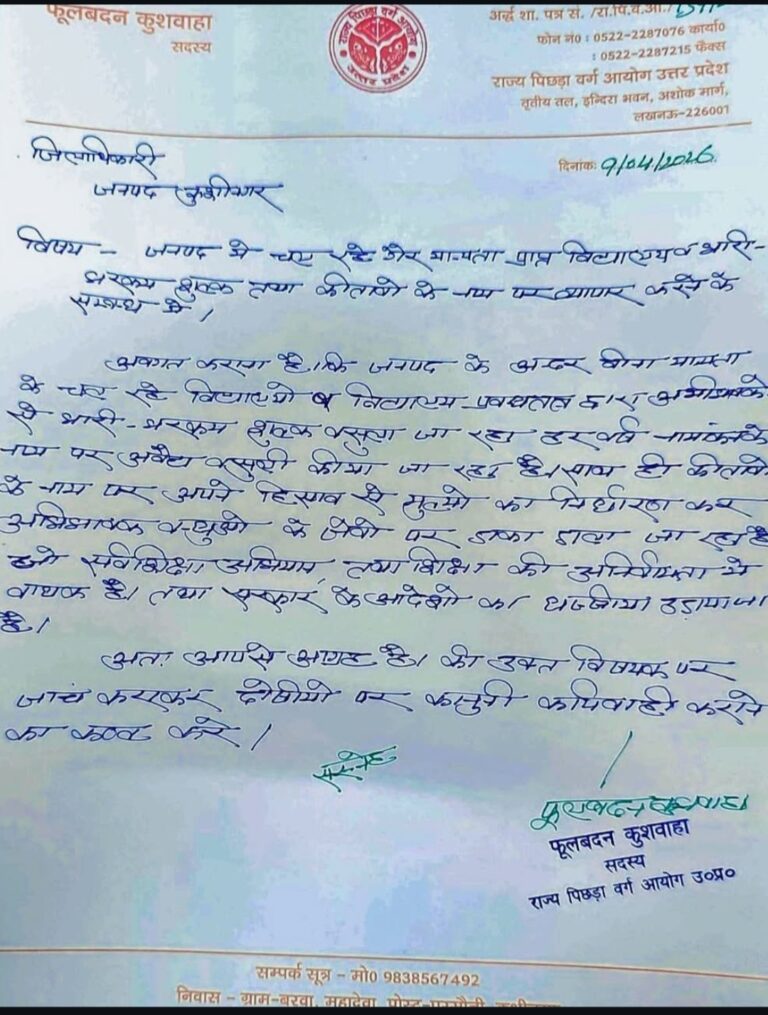 फूलबदन कुशवाहा
सदस्य
राज्य पिछड़ा वर्ग आयोग
उत्तर प्रदेश
अर्द्ध शा. पत्र सं. /रा.पि.व.आ./
फोन नं० : 0522-2287076 कार्या०
: 0522-2287215 फैक्स
राज्य पिछड़ा वर्ग आयोग उत्तर प्रदेश
तृतीय तल, इन्दिरा भवन, अशोक मार्ग,
लखनऊ-226001
दिनांक: 9/04/2026
जिलाधिकारी
जनपद कुशीनगर
विषय - जनपद मे चल रहे गैर मान्यता प्राप्त विद्यालय व भारी-
भरकम शुल्क तथा कीताबो के नाम पर व्यापार करने के
सम्बन्ध मे।
अवगत कराना है। कि जनपद के अन्दर बीना मान्यता
के चल रहे विद्यालयो व विद्यालय प्रबन्धतंत्र द्वारा अभीभावको
से भारी-भरकम शुल्क वसुला जा रहा हर वर्ष नामांकन के
नाम पर अवैध वसुली कीया जा रहा है। साथ ही कीताबो
के नाम पर अपने हिसाब से मुल्यो का निर्धारण कर
अभिभावक बन्धुओ के जेबो पर डाका डाला जा रहा है
जो सर्वशिक्षा अभियान तथा शिक्षा की अनिर्वायता मे
बाधक है। तथा सरकार के आदेशो का धज्जीया उड़ाया जा
है।
अतः आपसे आग्रह है। की उक्त विषयक पर
जांच कराकर दोषीयो पर कानुनी कार्यवाही कराने
का कष्ट करे।
सस्नेह
फूलबदन कुशवाहा
फूलबदन कुशवाहा
सदस्य
राज्य पिछड़ा वर्ग आयोग उ०प्र०
सम्पर्क सूत्र - मो० 9838567492
निवास - ग्राम-बरवा, महादेवा, पोस्ट-